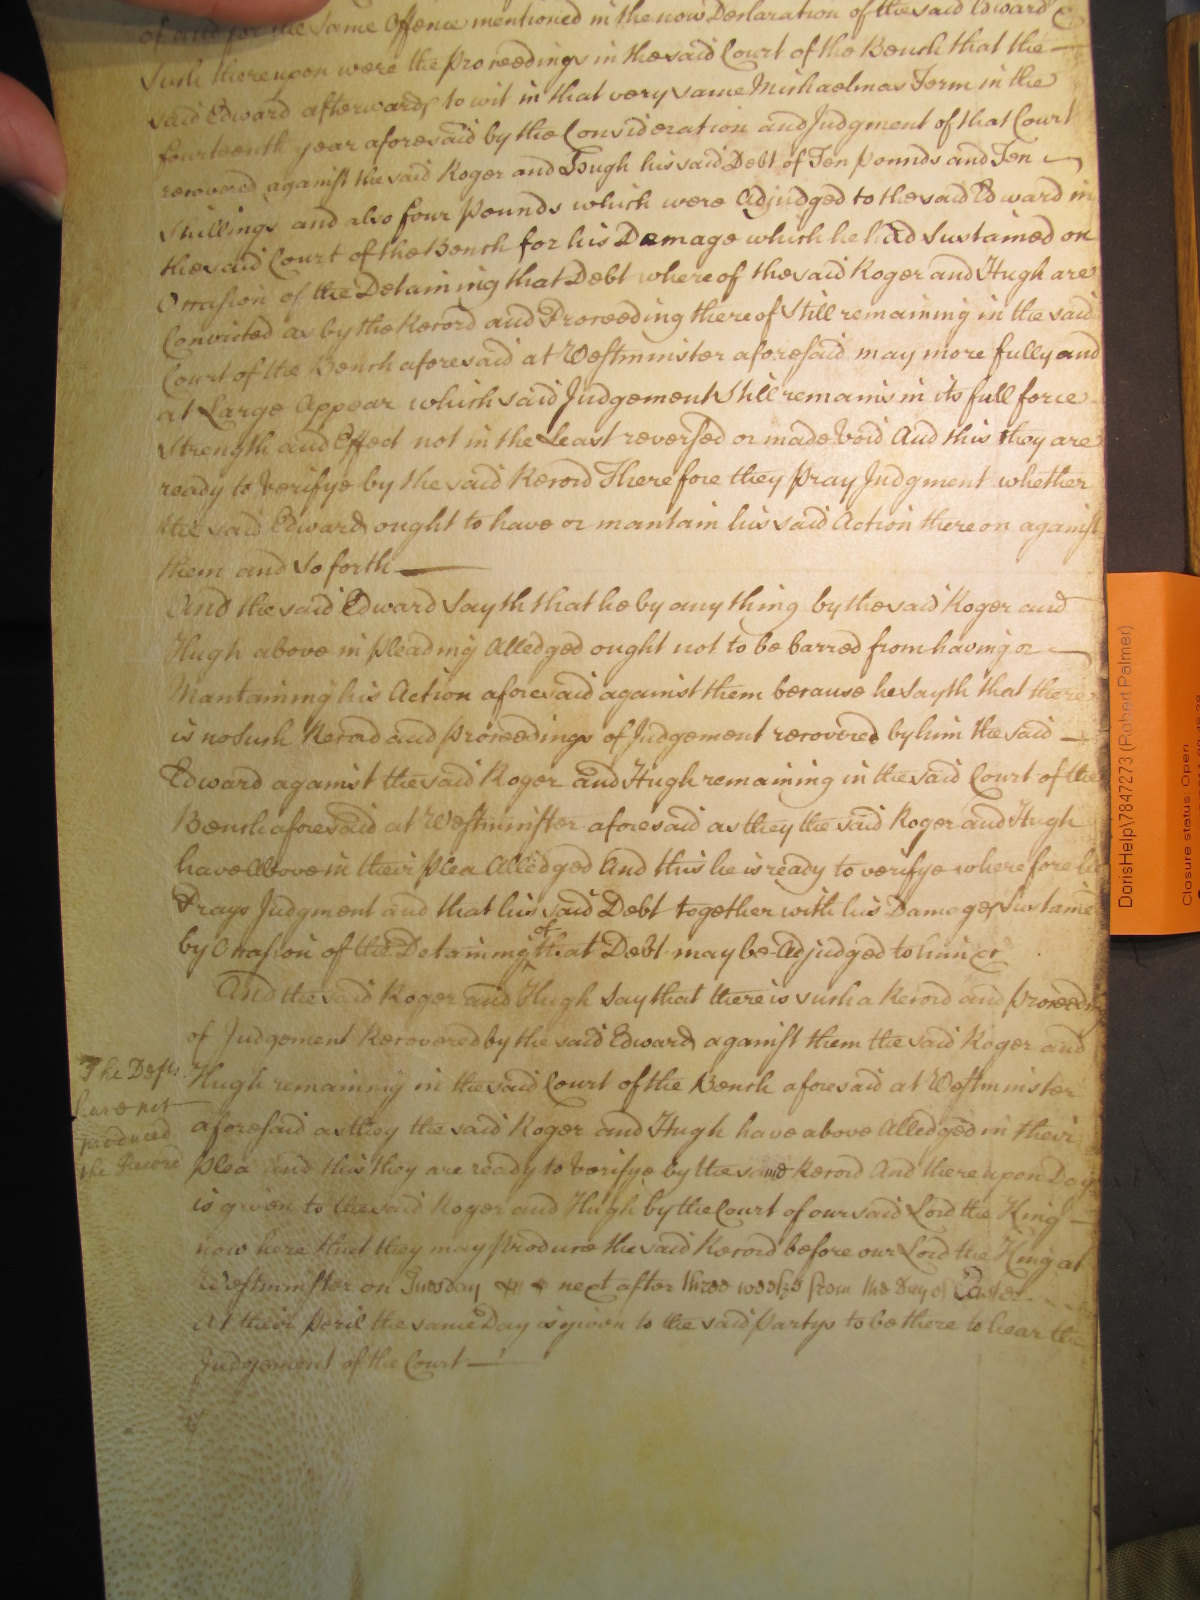 of and for the Same Offence mentioned in the now Declaration of the said Edward &
Such thereupon were the Proceedings in the said Court of the Bench that the
said Edward afterwards to wit in that very same Michaelmas Term in the
fourteenth year aforesaid by the Consideration and Judgment of that Court
recovered against the said Roger and Hugh his said Debt of Ten pounds and Ten
Shillings and also four Pounds which were Adjudged to the said Edward in
the said Court of the Bench for his Damage which he had Sustained on
Occasion of the Detaining that Debt whereof the said Roger and Hugh are
Convicted as by the Record and Proceeding thereof Still remaining in the said
Court of the Bench aforesaid at Westminster aforesaid may more fully and
at Large Appear which said Judgement Still remains in its full force
Strength and Effect not in the Least reversed or made Void And this they are
ready to Verifye by the said Record Therefore they pray Judgment whether
the said Edward ought to have or mantain his said Action thereon against
them and so forth
And the said Edward Sayth that he by any thing by the said Roger and
Hugh above in pleading Alledged ought not to be barred from having or
Mantaining his Action aforesaid against them because he Sayth that there
is no Such Record and Proceedings of Judgement recovered by him the said
Edward against the said Roger and Hugh remaining in the said Court of the
Bench aforesaid at Westminster aforesaid as they the said Roger and Hugh
have Above in their plea Alledged And this he is ready to verifye wherefore he
Prays Judgment and that his said Debt together with his Damages Sustained
by Occasion of the Detaining of that Debt may be Adjudged to him &c
And the said Roger and Hugh Say that there is such a Record and proceeding
of Judgement Recovered by the said Edward against them the said Roger and
Hugh remaining in the said Court of the Bench aforesaid at Westminster
aforesaid as they the said Roger and Hugh have above Alledged in their
Plea and this they are ready to Verifye by the same Record And thereupon Day
is given to the said Roger and Hugh by the Court of our said Lord the King
now here that they may produce the said Record before our Lord the King at
Westminster on Tuesday next after three weeks from the Day of Easter
At their Peril the same Day is given to the said Partys to be there to hear the
Judgement of the Court
The Defts
have not
produced
the Record
DorisHelp\7847273 (Robert Palmer)
Closure status: Open